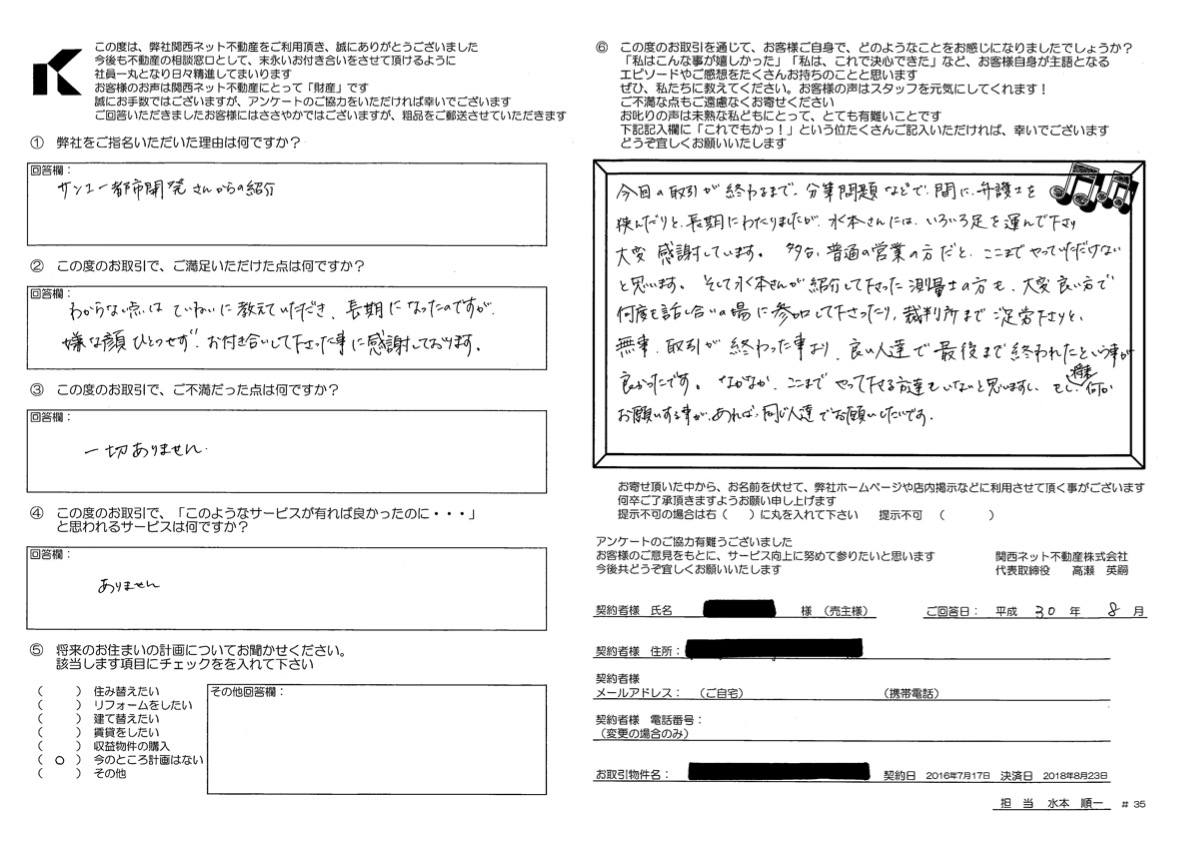 この度は、弊社関西ネット不動産をご利用頂き、誠にありがとうございました
今後も不動産の相談窓口として、末永いお付き合いをさせて頂けるように
社員一丸となり日々精進してまいります
お客様のお声は関西ネット不動産にとって「財産」です
誠にお手数ではございますが、アンケートのご協力をいただければ幸いでございます
ご回答いただきましたお客様にはささやかではございますが、粗品をご郵送させていただきます
① 弊社をご指名いただいた理由は何ですか？
回答欄：
サンユー都市開発さんからの紹介
② この度のお取引で、ご満足いただけた点は何ですか？
回答欄：
わからない点は ていねいに教えていただき、長期になったのですが、
嫌な顔ひとつせず、お付き合いして下さった事に感謝しております。
③ この度のお取引で、ご不満だった点は何ですか？
回答欄：
一切ありません。
④ この度のお取引で、「このようなサービスが有れば良かったのに・・・」
と思われるサービスは何ですか？
回答欄：
ありません
⑤ 将来のお住まいの計画についてお聞かせください。
該当します項目にチェックをを入れて下さい
（　　）住み替えたい
（　　）リフォームをしたい
（　　）建て替えたい
（　　）賃貸をしたい
（　　）収益物件の購入
（ ○ ）今のところ計画はない
（　　）その他
その他回答欄：
⑥ この度のお取引を通じて、お客様ご自身で、どのようなことをお感じになりましたでしょうか？
「私はこんな事が嬉しかった」「私は、これで決心できた」など、お客様自身が主語となる
エピソードやご感想をたくさんお持ちのことと思います
ぜひ、私たちに教えてください。お客様の声はスタッフを元気にしてくれます！
ご不満な点もご遠慮なくお寄せください
お叱りの声は未熟な私どもにとって、とても有難いことです
下記記入欄に「これでもかっ！」という位たくさんご記入いただければ、幸いでございます
どうぞ宜しくお願いいたします
今回の取引が終わるまで、分筆問題などで、間に、弁護士を
挟んだりと、長期にわたりましたが、水本さんには、いろいろ足を運んで下さり
大変感謝しています。多分、普通の営業の方だと、ここまでやっていただけない
と思います。そして水本さんが紹介して下さった測量士の方も、大変良い方で
何度も話し合いの場に参加して下さったり、裁判所までご足労下さりと、
無事、取引が終わった事より、良い人達で最後まで終われたという事が
良かったです。なかなか、ここまでやって下さる方達もいないと思いますし、もし、将来何か
お願いする事が、あれば、同じ人達でお願いしたいです。
お寄せ頂いた中から、お名前を伏せて、弊社ホームページや店内掲示などに利用させて頂く事がございます
何卒ご了承頂きますようお願い申し上げます
提示不可の場合は右（　　）に丸を入れて下さい　提示不可　（　　　）
アンケートのご協力有難うございました
お客様のご意見をもとに、サービス向上に努めて参りたいと思います
今後共どうぞ宜しくお願いいたします
関西ネット不動産株式会社
代表取締役　高瀬　英嗣
契約者様　氏名　様（売主様）　ご回答日：　平成 30 年 8 月
契約者様　住所：
契約者様
メールアドレス：　（ご自宅）　（携帯電話）
契約者様　電話番号：
（変更の場合のみ）
お取引物件名：　契約日　2016年7月17日　決済日　2018年8月23日
担　当　水本　順一　＃35